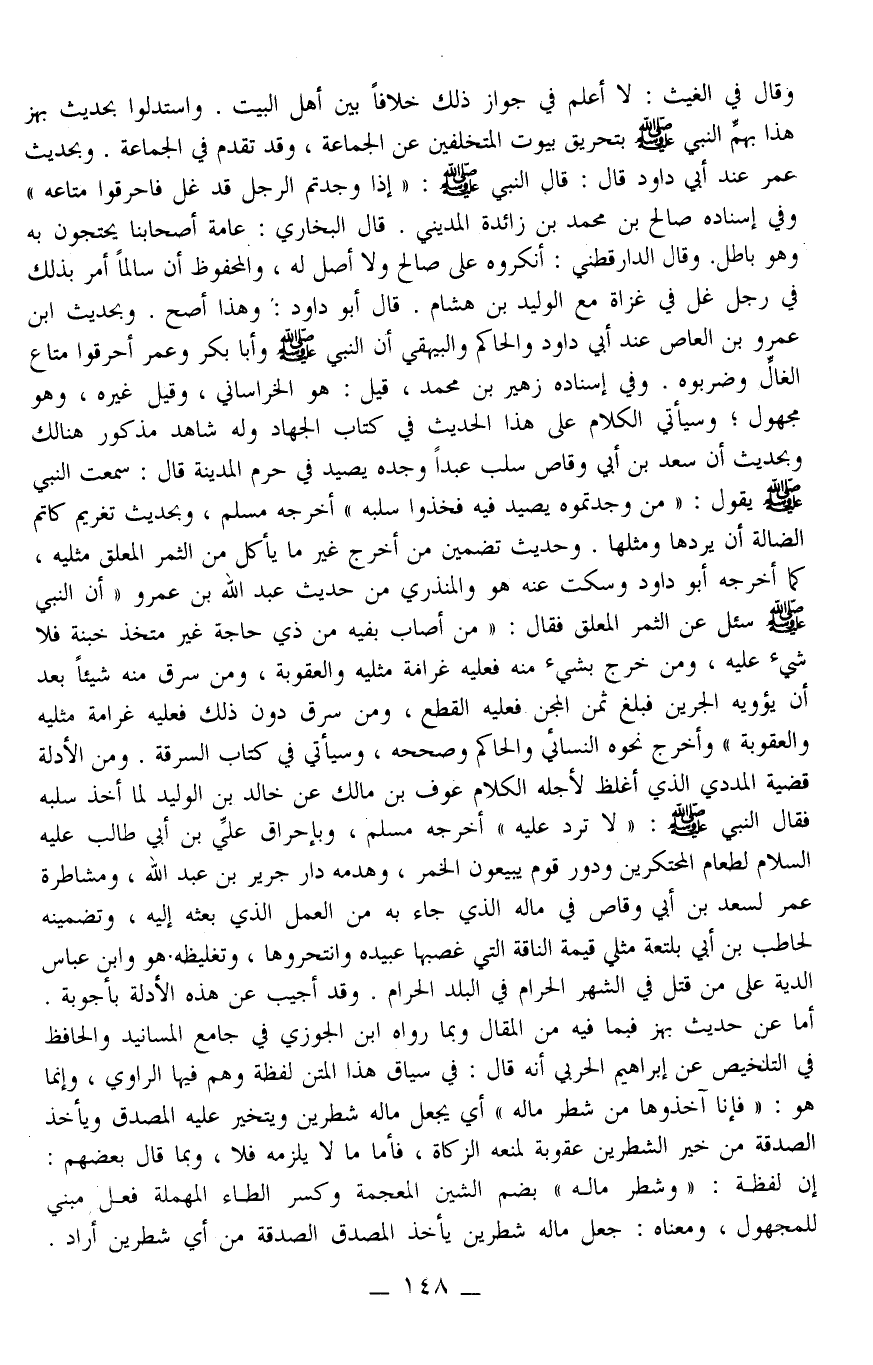 وقال في الغيث : لا أعلم في جواز ذلك خلافاً بين أهل البيت . واستدلوا بحديث بهز
هذا بهمِّ النبي ﷺ بتحريق بيوت المتخلفين عن الجماعة ، وقد تقدم في الجماعة . وبحديث
عمر عند أبي داود قال : قال النبي ﷺ : « إذا وجدتم الرجل قد غل فاحرقوا متاعه »
وفي إسناده صالح بن محمد بن زائدة المديني . قال البخاري : عامة أصحابنا يحتجون به
وهو باطل. وقال الدارقطني : أنكروه على صالح ولا أصل له ، والمحفوظ أن سالماً أمر بذلك
في رجل غل في غزاة مع الوليد بن هشام . قال أبو داود : وهذا أصح . وبحديث ابن
عمرو بن العاص عند أبي داود والحاكم والبيهقي أن النبي ﷺ وأبا بكر وعمر أحرقوا متاع
الغالِّ وضربوه . وفي إسناده زهير بن محمد ، قيل : هو الخراساني ، وقيل غيره ، وهو
مجهول ؛ وسيأتي الكلام على هذا الحديث في كتاب الجهاد وله شاهد مذكور هنالك
وبحديث أن سعد بن أبي وقاص سلب عبداً وجده يصيد في حرم المدينة قال : سمعت النبي
ﷺ يقول : « من وجدتموه يصيد فيه فخذوا سلبه » أخرجه مسلم ، وبحديث تغريم كاتم
الضالة أن يردها ومثلها . وحديث تضمين من أخرج غير ما يأكل من الثمر المعلق مثليه ،
كما أخرجه أبو داود وسكت عنه هو والمنذري من حديث عبد الله بن عمرو « أن النبي
ﷺ سئل عن الثمر المعلق فقال : « من أصاب بفيه من ذي حاجة غير متخذ خبنة فلا
شيء عليه ، ومن خرج بشيء منه فعليه غرامة مثليه والعقوبة ، ومن سرق منه شيئاً بعد
أن يؤويه الجرين فبلغ ثمن المجن فعليه القطع ، ومن سرق دون ذلك فعليه غرامة مثليه
والعقوبة » وأخرج نحوه النسائي والحاكم وصححه ، وسيأتي في كتاب السرقة . ومن الأدلة
قضية المددي الذي أغلظ لأجله الكلام عوف بن مالك عن خالد بن الوليد لما أخذ سلبه
فقال النبي ﷺ : « لا ترد عليه » أخرجه مسلم ، وبإحراق عليِّ بن أبي طالب عليه
السلام لطعام المحتكرين ودور قوم يبيعون الخمر ، وهدمه دار جرير بن عبد الله ، ومشاطرة
عمر لسعد بن أبي وقاص في ماله الذي جاء به من العمل الذي بعثه إليه ، وتضمينه
لحاطب بن أبي بلتعة مثلي قيمة الناقة التي غصبها عبيده وانتحروها ، وتغليظه هو وابن عباس
الدية على من قتل في الشهر الحرام في البلد الحرام . وقد أجيب عن هذه الأدلة بأجوبة .
أما عن حديث بهز فبما فيه من المقال وبما رواه ابن الجوزي في جامع المسانيد والحافظ
في التلخيص عن إبراهيم الحربي أنه قال : في سياق هذا المتن لفظة وهم فيها الراوي ، وإنما
هو : « فإنا آخذوها من شطر ماله » أي يجعل ماله شطرين ويتخير عليه المصدق ويأخذ
الصدقة من خير الشطرين عقوبة لمنعه الزكاة ، فأما ما لا يلزمه فلا ، وبما قال بعضهم :
إن لفظة : « وشطر ماله » بضم الشين المعجمة وكسر الطاء المهملة فعل مبني
للمجهول ، ومعناه : جعل ماله شطرين يأخذ المصدق الصدقة من أي شطرين أراد .
— ١٤٨ —